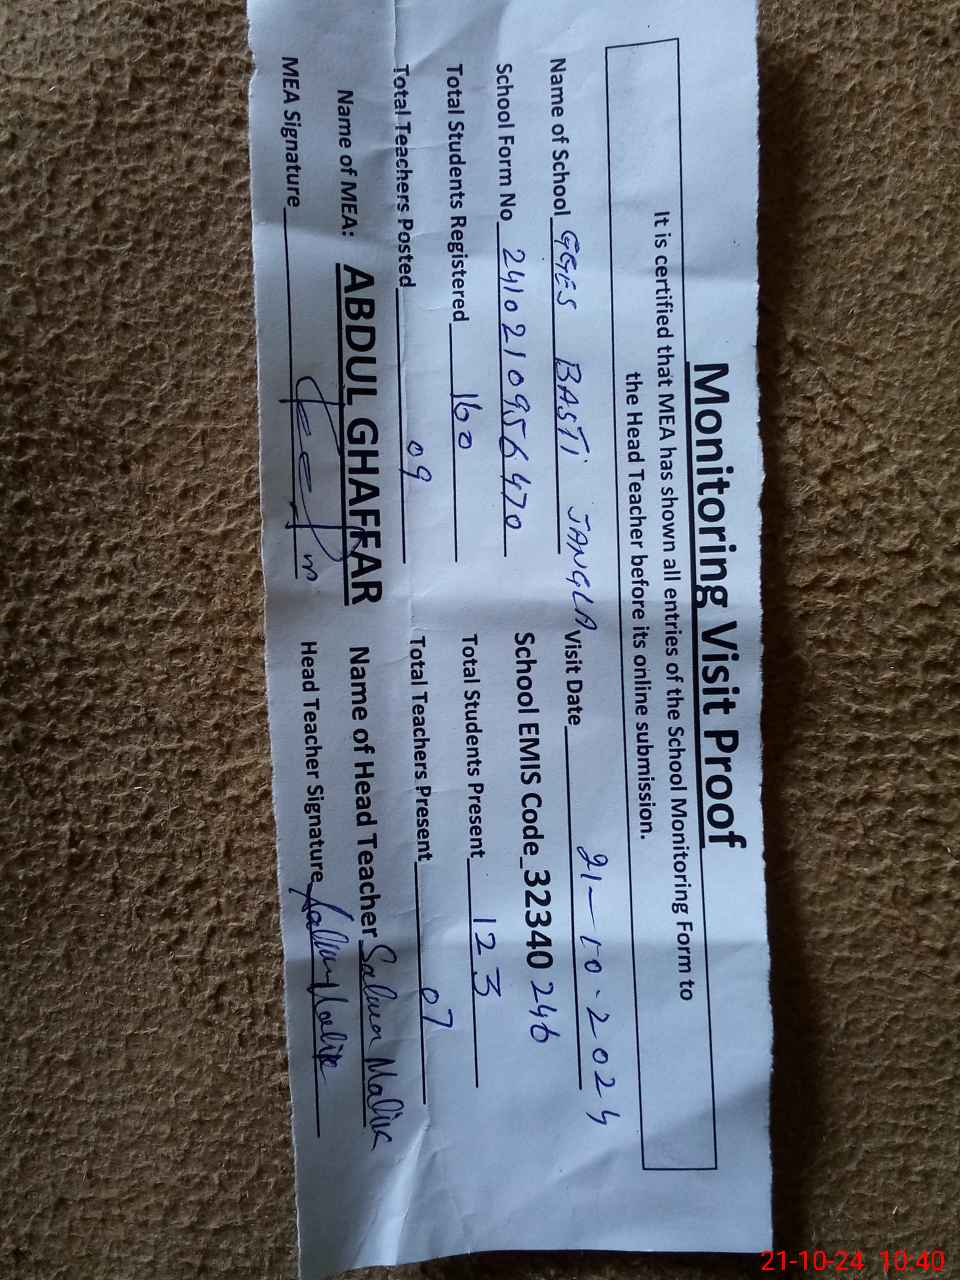 Monitoring Visit Proof
It is certified that MEA has shown all entries of the School Monitoring Form to
the Head Teacher before its online submission.
Name of School GGES BASTI JANGLA Visit Date 21-10-2024
School Form No 2410210956470 School EMIS Code_32340246
Total Students Registered 160 Total Students Present 123
Total Teachers Posted 09 Total Teachers Present 07
Name of MEA: ABDUL GHAFFAR Name of Head Teacher Salma Malik
MEA Signature Head Teacher Signature Salma Malik
21-10-24 10:40